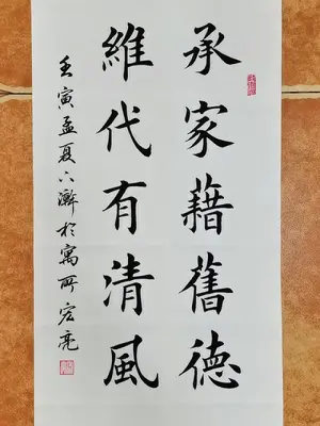 承家藉舊德
維代有清風
壬寅孟夏六瀞於寓所宏亮